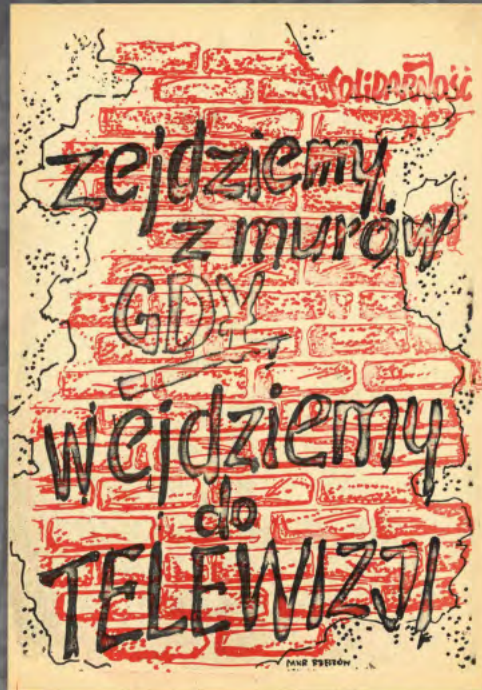 SOLiDARNOŚĆ
zejdziemy
z murów
GDY
wejdziemy
do
TELEWIZJI